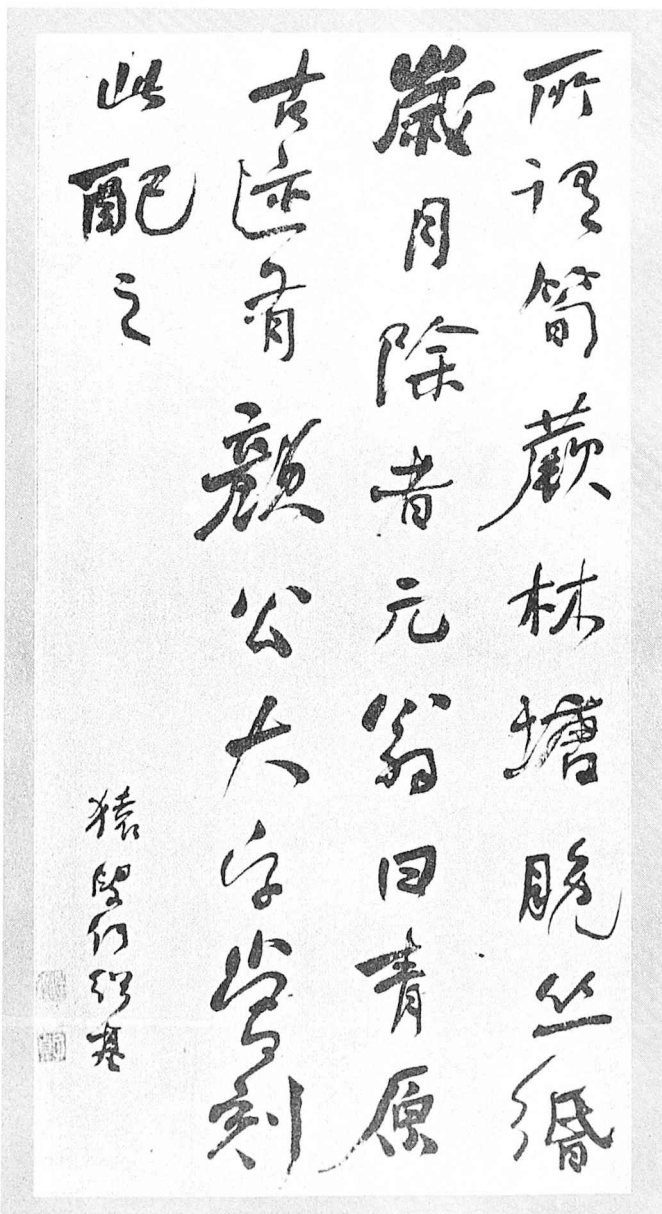 所謂筍蕨林塘晚丝緡
歲月除者元翁曰青原
古迹有顏公大字當刻
此配之
猿叟何紹基